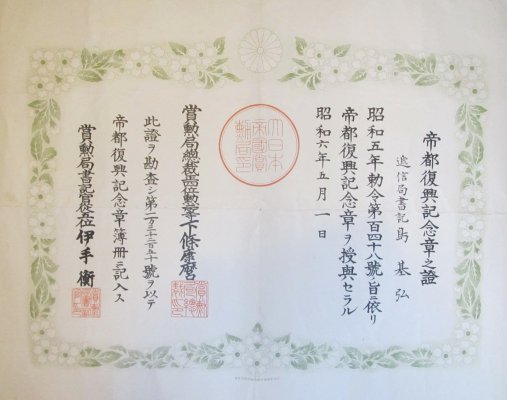 帝都復興記念章之證
遞信局書記 基弘
昭和五年勅令第百四十八號ノ旨ニ依リ
帝都復興記念章ヲ授與セラル
昭和六年五月一日
大日本
帝國賞
勲局印
賞勲局總裁 下條康麿
此證ヲ勘査シ第 號ヲ以テ
帝都復興記念章簿冊ニ記入ス
賞勲局書記官 伊手衡